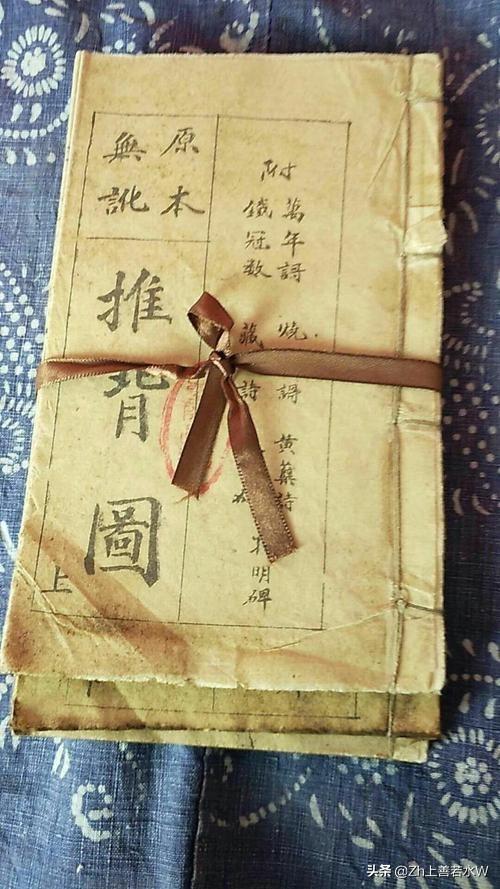 附
萬年謌
燒 謌
黃蘗詩
鐵冠數
藏 詩
明碑
原本
無訛
推背圖
上
头条 @Zh上善若水W